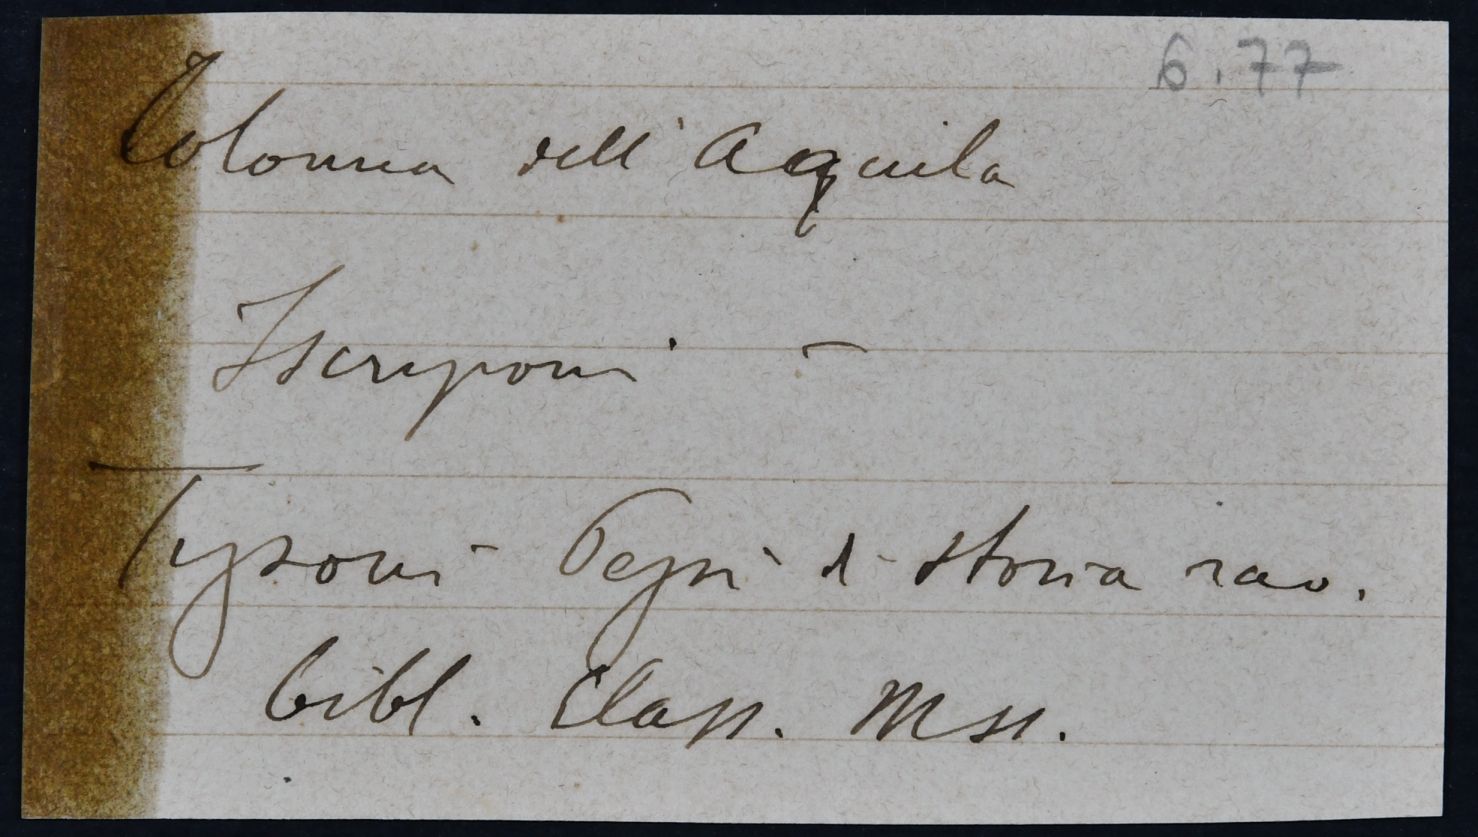 6.77
Colonna dell'Aquila
Iscrizioni -
Tizzoni - di storia rav.
bibl. Class. Mss.